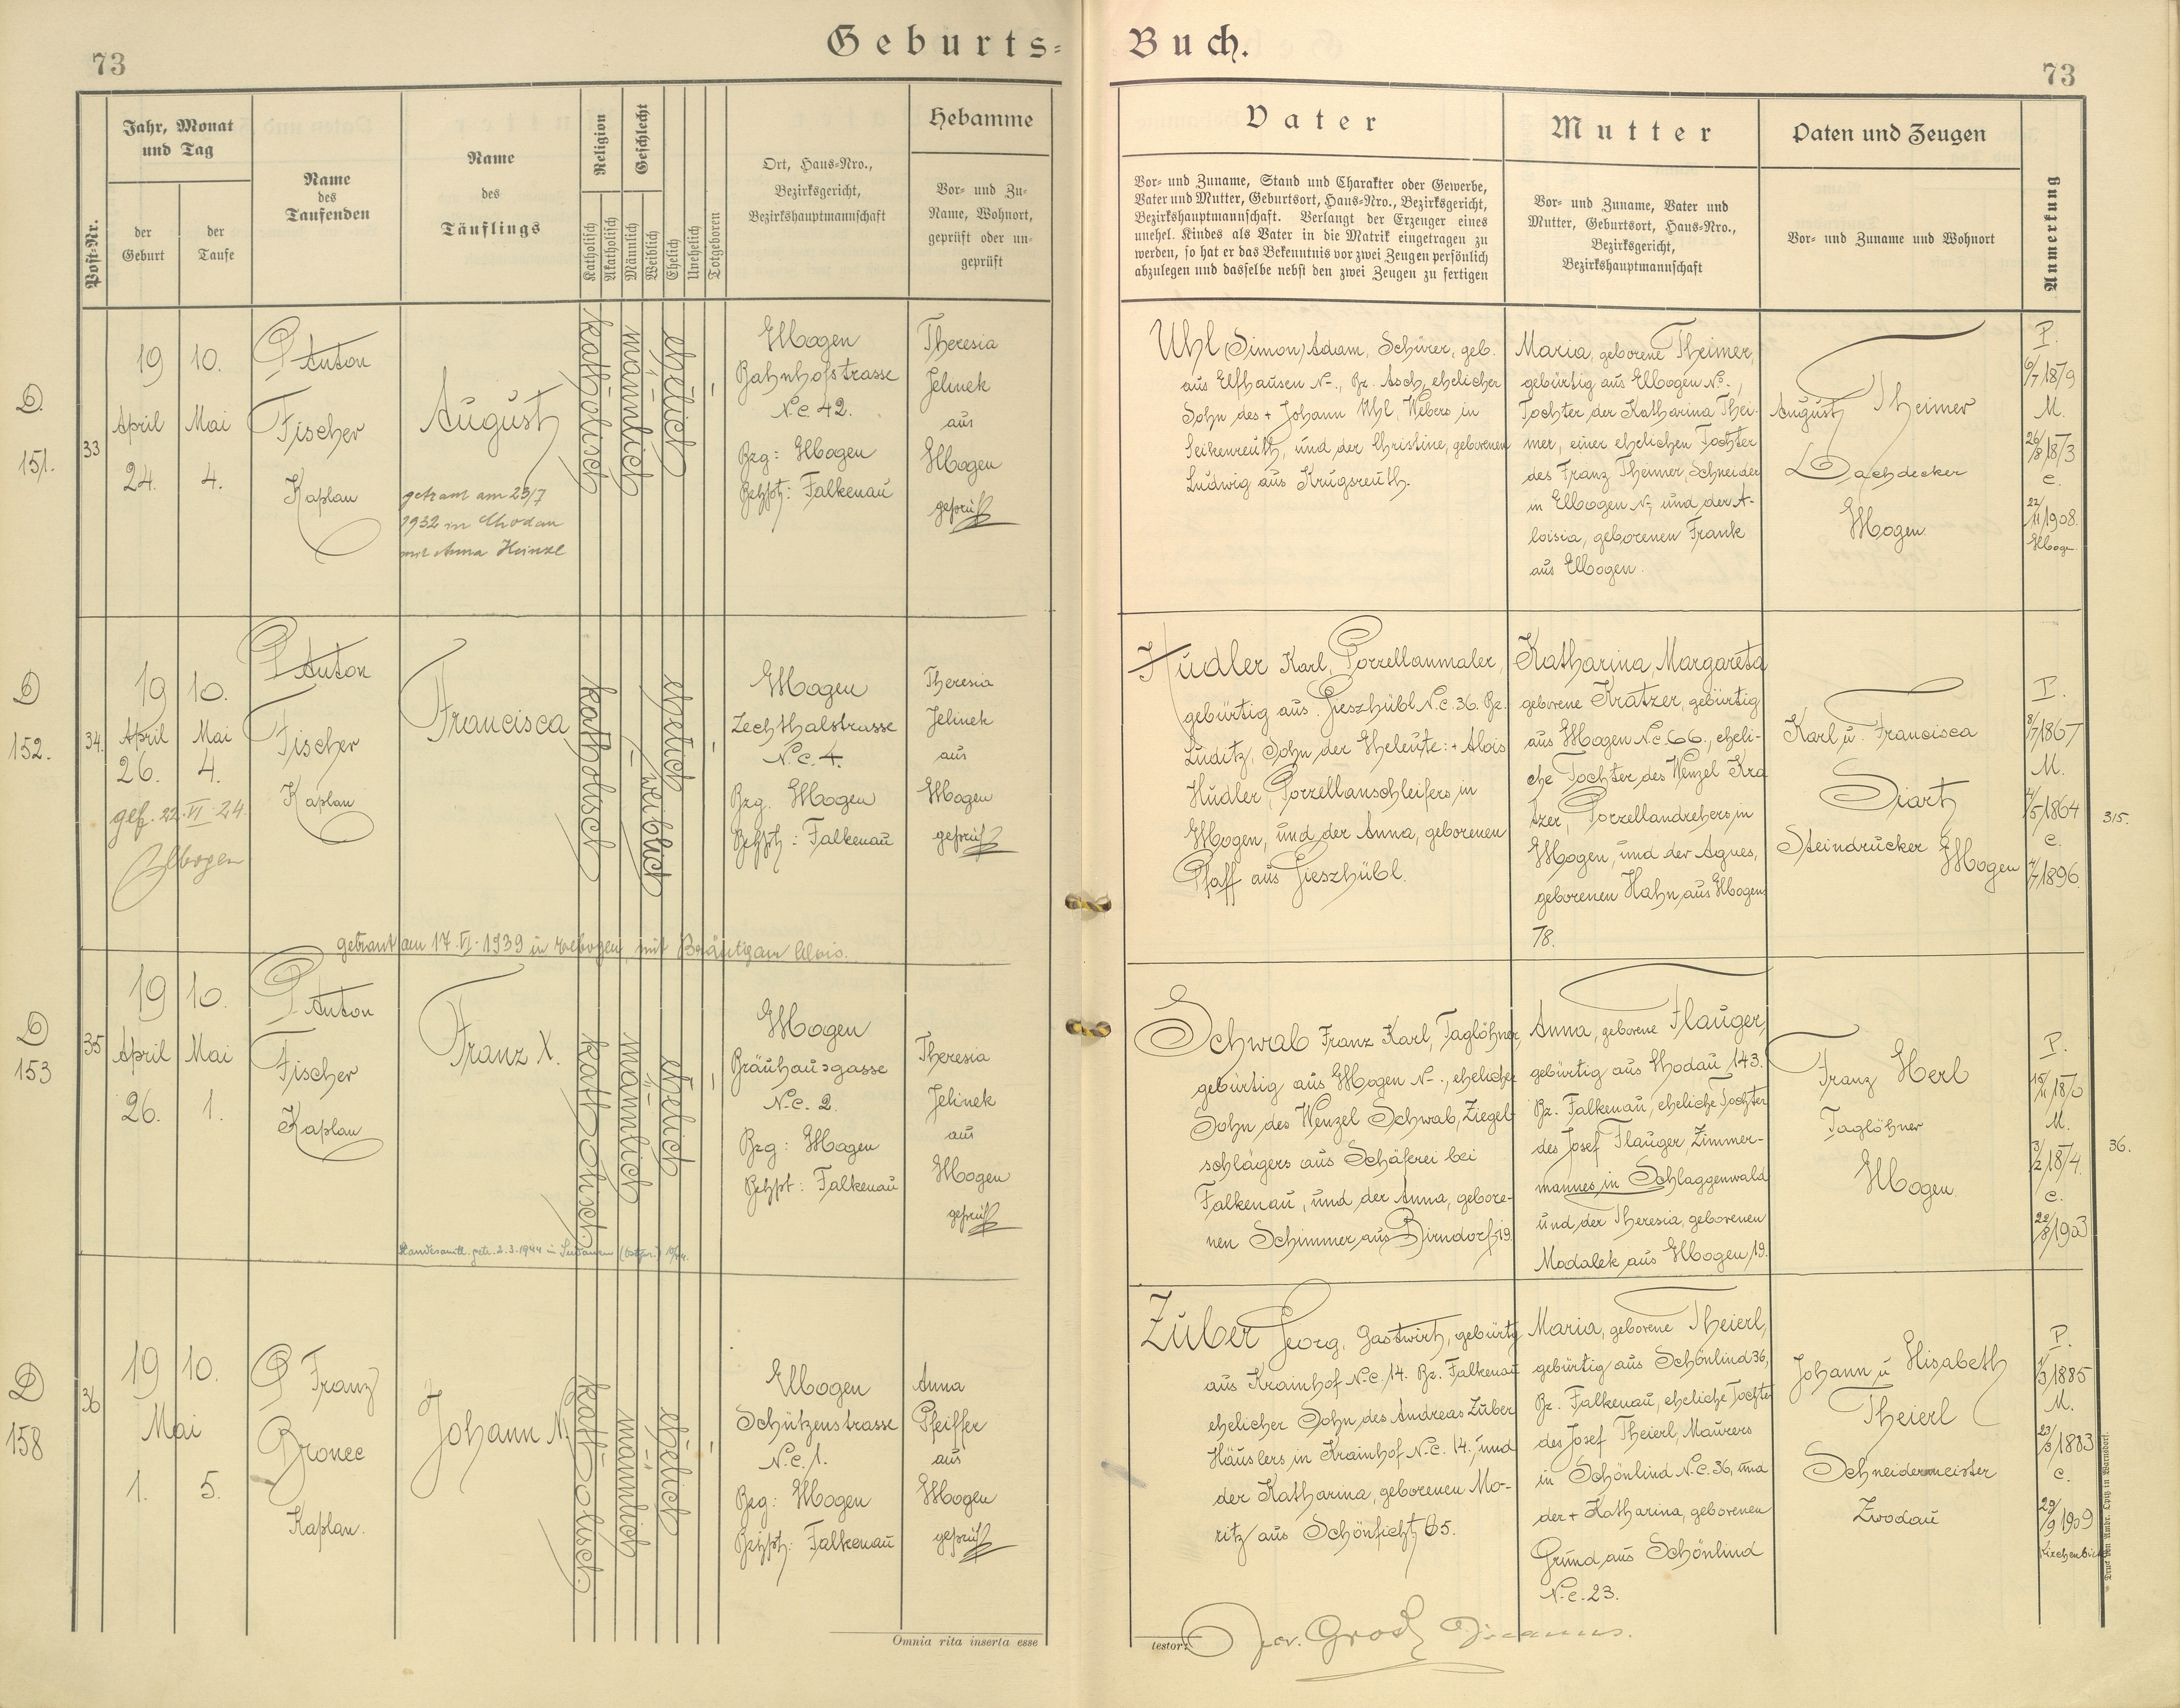 73
Geburts=
Buch.
73
Post-Nr.
Jahr, Monat
und Tag
der
Geburt
der
Taufe
Name
des
Taufenden
Name
des
Täuflings
Religion
Katholisch
Akatholisch
Geschlecht
Männlich
Weiblich
Ehelich
Unehelich
Totgeboren
Ort, Haus=Nro.,
Bezirksgericht,
Bezirkshauptmannschaft
Hebamme
Vor= und Zu=
Name, Wohnort,
geprüft oder un=
geprüft
Vater
Vor= und Zuname, Stand und Charakter oder Gewerbe,
Vater und Mutter, Geburtsort, Haus=Nro., Bezirksgericht,
Bezirkshauptmannschaft. Verlangt der Erzeuger eines
unehel. Kindes als Vater in die Matrik eingetragen zu
werden, so hat er das Bekenntnis vor zwei Zeugen persönlich
abzulegen und dasselbe nebst den zwei Zeugen zu fertigen
Mutter
Vor= und Zuname, Vater und
Mutter, Geburtsort, Haus=Nro.,
Bezirksgericht,
Bezirkshauptmannschaft
Paten und Zeugen
Vor= und Zuname und Wohnort
Anmerkung
D.
151.
33
19 10.
April Mai
24. 4.
P Anton
Fischer
Kaplan
August
getraut am 23/7
1932 in Chodau
mit Anna Heinzl
katholisch
männlich
ehelich
Elbogen
Bahnhofstrasse
N.c. 42.
Bzg: Elbogen
Bzhpt: Falkenau
Theresia
Jelinek
aus
Elbogen
geprüft
Uhl (Simon) Adam, Schürer, geb.
aus Elfhausen N-., Bz. Asch, ehelicher
Sohn des + Johann Uhl, Webers in
Seikenreuth, und der Christine, geborenen
Ludwig aus Krugsreuth.
Maria, geborene Theimer,
gebürtig aus Elbogen N-.,
Tochter der Katharina Thei-
mer, einer ehelichen Tochter
des Franz Theimer, Schneider
in Elbogen N-, und der A-
loisia, geborenen Frank
aus Elbogen.
August Theimer
Dachdecker
Elbogen
P.
6/7 1879
M.
26/8 1873
c.
22/11 1908.
D
152.
34.
19 10.
April Mai
26. 4.
gef. 22.VI.24
Elbogen
P Anton
Fischer
Kaplan
Francisca
katholisch
weiblich
ehelich
Elbogen
Zechthalstrasse
N.c. 4.
Bzg. Elbogen
Bzhpt: Falkenau
Theresia
Jelinek
aus
Elbogen
geprüft
getraut am 17.VI.1939 in Elbogen, mit Bräutigam Alois.
Hudler Karl, Porzellanmaler,
gebürtig aus Gieszhübl N.c. 36. Bz.
Luditz, Sohn der Eheleute: + Alois
Hudler, Porzellanschleifers in
Elbogen, und der Anna, geborenen
Pfaff aus Gieszhübl.
Katharina Margareta
geborene Kratzer, gebürtig
aus Elbogen N.c. 66., eheli-
che Tochter des Wenzel Kra
tzer, Porzellandrehers in
Elbogen, und der Agnes,
geborenen Hahn, aus Elbogen
78.
Karl u. Francisca
Siart
Steindrucker Elbogen
P.
8/7 1867
M.
4/5 1864
c.
7/7 1896.
315.
D
153
35
19 10.
April Mai
26. 1.
P Anton
Fischer
Kaplan
Franz X.
katholisch
männlich
ehelich
Elbogen
Bräuhausgasse
N.c. 2.
Bzg: Elbogen
Bzhpt: Falkenau
Theresia
Jelinek
aus
Elbogen
geprüft
Standesamtl. getr. 2.3.1944 in Sudauen (Ostpr.)
Schwab Franz Karl, Taglöhner,
gebürtig aus Elbogen N-., ehelicher
Sohn des Wenzel Schwab, Ziegel-
schlägers aus Schäferei bei
Falkenau, und der Anna, gebore-
nen Schimmer, aus Birndorf 19.
Anna, geborene Flauger,
gebürtig aus Chodau 143.
Bz. Falkenau, eheliche Tochter
des Josef Flauger, Zimmer-
mannes in Schlaggenwald
und der Theresia, geborenen
Modalek aus Elbogen 19.
Franz Herl
Taglöhner
Elbogen
P.
15/11 1870
M.
3/2 1874.
c.
20/8 1903
36.
D
158
36
19 10.
Mai
1. 5.
P Franz
Bronec
Kaplan.
Johann N.
katholisch
männlich
ehelich
Elbogen
Schützenstrasse
N.c. 1.
Bzg: Elbogen
Bzhpt: Falkenau
Anna
Pfeiffer
aus
Elbogen
geprüft
Zuber Georg, Gastwirt, gebürtig
aus Krainhof N.c. 14. Bz. Falkenau
ehelicher Sohn des Andreas Zuber
Häuslers in Krainhof N.c. 14., und
der Katharina, geborenen Mo-
ritz aus Schönficht 65.
Maria, geborene Theierl,
gebürtig aus Schönlind 36,
Bz. Falkenau, eheliche Tochter
des Josef Theierl, Maurers
in Schönlind N.c. 36, und
der + Katharina, geborenen
Grund, aus Schönlind
N.c. 23.
Johann u Elisabeth
Theierl
Schneidermeister
Zwodau
P.
1/3 1885
M.
23/3 1883
c.
29/9 1909
Omnia rita inserta esse
testor:
Druck von Ambr. Opitz in Warnsdorf.